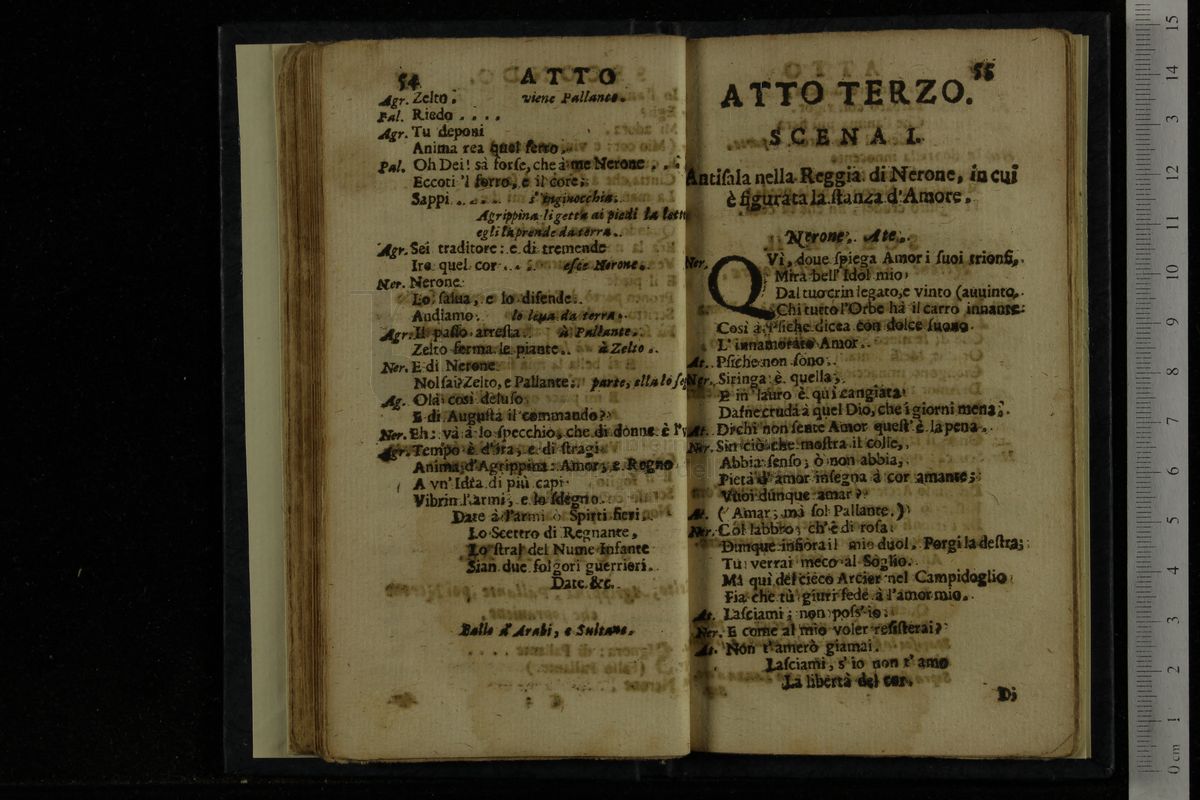 54
ATTO
Agr. Zelto. viene Pallante.
Pal. Riedo . . . .
Agr. Tu deponi
Anima rea quel ferro.
Pal. Oh Dei! sà forse, che à me Nerone . . .
Eccoti 'l ferro, e il core;
Sappi . . . . . s'inginocchia.
Agrippina li getta ai piedi la
egli la prende da terra.
Agr. Sei traditore: e di tremende
Ire quel cor . . . . esce Nerone.
Ner. Nerone
Lo salua, e lo difende.
Audiamo. lo leua da terra.
Agr. Il passo arresta. à Pallante.
Zelto ferma le piante. à Zelto.
Ner. E di Nerone
Nol sai? Zelto, e Pallante. parte, ella lo
Ag. Olà: così deluso
E di Augusta il commando?
Ner. Eh: và à lo specchio, che di donne è
Agr. Tempo è d'ira, e di stragi
Anima d'Agrippina: Amor, e Regno
A vn'Idra di più capi
Vibrin l'armi, e lo sdegno.
Date à l'armi ò Spirti fieri.
Lo Scettro di Regnante,
Lo stral del Nume Infante
Sian due folgori guerrieri.
Date &c.
Ballo d'Arabi, e Sultane.
55
ATTO TERZO.
SCENA I.
Antisala nella Reggia di Nerone, in cui
è figurata la stanza d'Amore.
Nerone. Ate.
Ner. QVì, doue spiega Amor i suoi trionfi,
Mira bell' Idol mio
Dal tuo crin legato, e vinto (auuinto,
Chi tutto l'Orbe hà il carro innante:
Così à Psiche dicea con dolce suono
L'innamorato Amor.
At. Psiche non sono.
Ner. Siringa è quella,
E in lauro è quì cangiata
Dafne cruda à quel Dio, che i giorni mena;
At. Di chi non sente Amor quest' è la pena.
Ner. Sin ciò che mostra il colle,
Abbia senso, ò non abbia,
Pietà d'amor insegna à cor amante;
Vuoi dunque amar?
At. (Amar; mà sol Pallante.)
Ner. Col labbro, ch'è di rosa
Dunque infiora il mio duol. Porgi la destra;
Tu verrai meco al Soglio.
Mà quì del cieco Arcier nel Campidoglio
Fia che tù giuri fede à l'amor mio.
At. Lasciami; non poss'io.
Ner. E come al mio voler resisterai?
At. Non t'amerò giamai.
Lasciami, s'io non t'amo
La libertà del cor.
Di